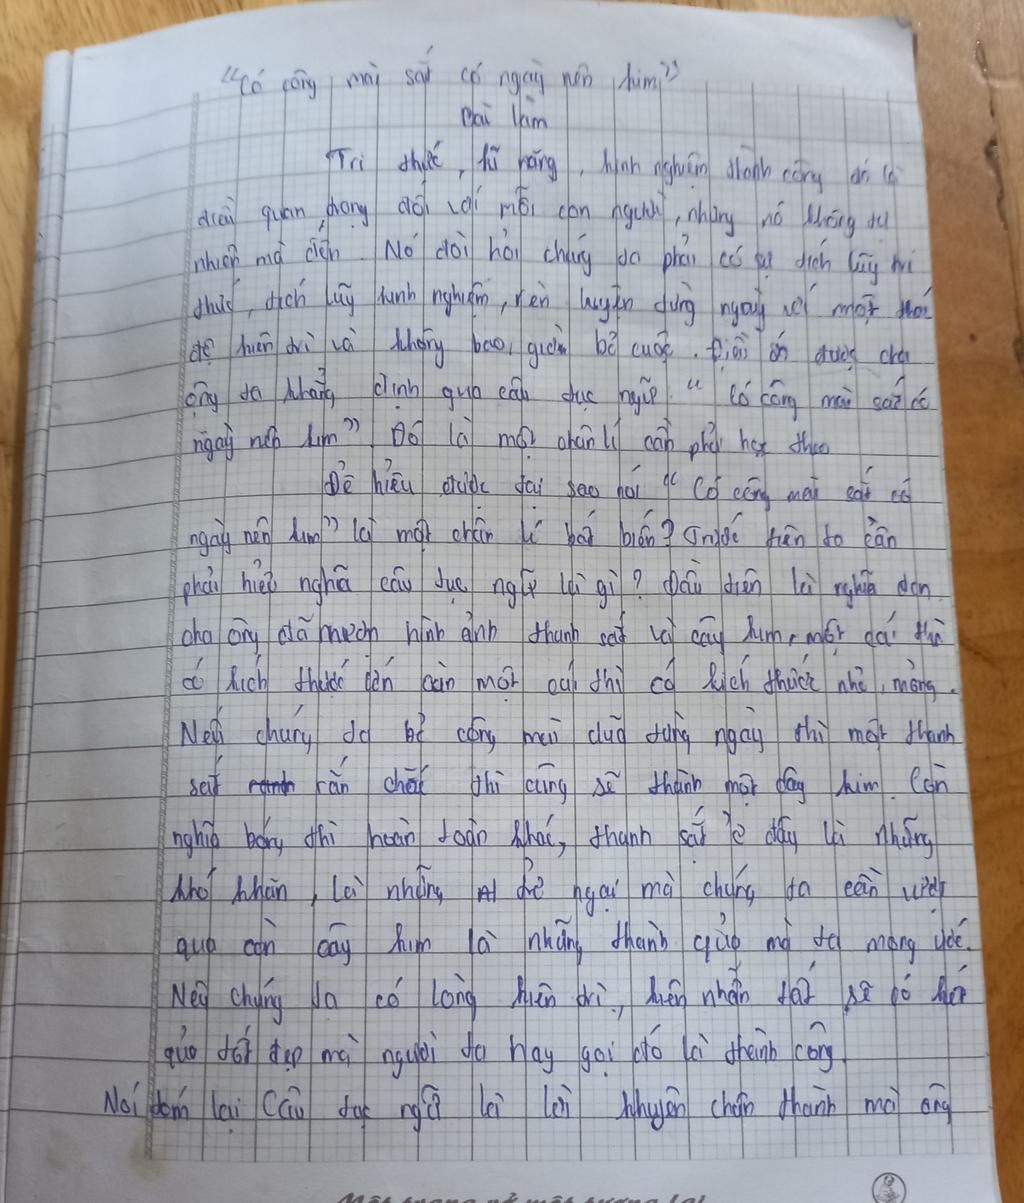 "Có công mài sắt có ngày nên kim"
Bài làm
Tri thức, kĩ năng, kinh nghiệm thành công đó là
điều quan trọng đối với mỗi con người, nhưng nó không tự
nhiên mà đến. Nó đòi hỏi chúng ta phải có sự tích lũy tri
thức, tích lũy kinh nghiệm, rèn luyện từng ngày với một thái
độ kiên trì và không bao giờ bỏ cuộc. Điều ấy được cha
ông ta khẳng định qua câu tục ngữ "Có công mài sắt có
ngày nên kim" Đó là một chân lí cần phải học theo
Để hiểu được tại sao nói "Có công mài sắt có
ngày nên kim" là một chân lí bất biến? Trước tiên ta cần
phải hiểu nghĩa câu tục ngữ là gì? Đầu tiên là nghĩa đen
cha ông đã mượn hình ảnh thanh sắt và cây kim, một cái thì
có kích thước lớn còn một cái thì có kích thước nhỏ, mỏng.
Nếu chúng ta bỏ công mài dũa từng ngày thì một thanh
sắt rắn chắc thì cũng sẽ thành một cây kim. Còn
nghĩa bóng thì hoàn toàn khác, thanh sắt ở đây là những
khó khăn, là những trở ngại mà chúng ta cần vượt
qua còn cây kim là những thành quả mà ta mong ước.
Nếu chúng ta có lòng kiên trì, kiên nhẫn tất sẽ có kết
quả tốt đẹp mà người ta hay gọi đó là thành công.
Nói tóm lại Câu tục ngữ là lời khuyên chân thành mà ông